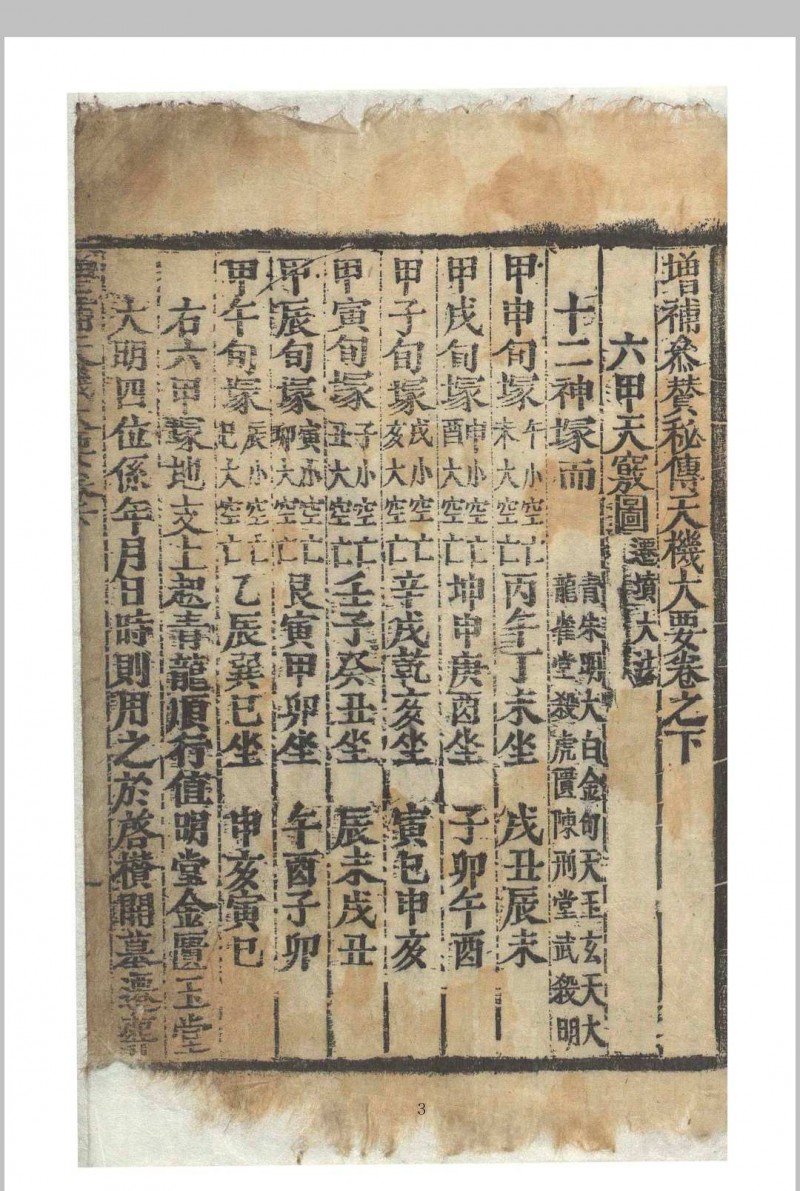 增補叅賛秘傳天機大要卷之下
六甲天竅圖 遷墳大法
十二神塚而 青朱明大白金句天玉玄天大
龍雀堂殺虎匱陳刑堂武殺明
甲申旬塚 午小空亡 未大空亡 丙午丁未坐 戌丑辰未
甲戌旬塚 申小空亡 酉大空亡 坤申庚酉坐 子卯午酉
甲子旬塚 戌小空亡 亥大空亡 辛戌乾亥坐 寅巳申亥
甲寅旬塚 子小空亡 丑大空亡 壬子癸丑坐 辰未戌丑
甲辰旬塚 寅小空亡 卯大空亡 艮寅甲卯坐 午酉子卯
甲午旬塚 辰小空亡 巳大空亡 乙辰巽巳坐 申亥寅巳
右六甲塚地支上起青龍順行值明堂金匱玉堂
大明四位係年月日時則用之於啓欑開墓遷
3